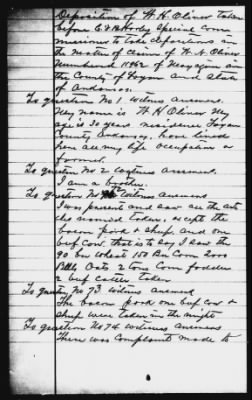 Deposition of W H Oliver taken
before E. Special Com
missioner to take depositions in
the Matter of Claim of W. A. Oliver
Numbered 11862 of
the County of and State
of Arkansas.
To question No 1 witness answers.
My name is W H Oliver My
age is 30 years residence
County Arkansas, have lived
here all my life occupation a
Farmer.
To question No 2 witness answers.
I am a brother.
To question No witness answers
I was present and saw all the arti
cles named taken, except the
bacon pork & sheep and one
beef cow. that is to say I saw the
90 bu wheat 150 Bu Corn 2000
Bdls Oats 2 tons Corn fodder
2 beef cattle taken
To question No 73. witness answers
The bacon pork one beef cow &
sheep were taken in the night
To question No 74 witness answers
There was complaint made to